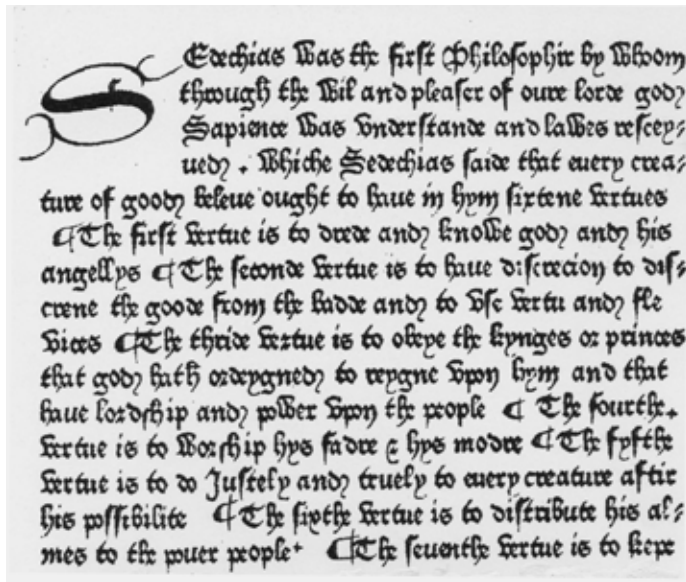 SEdechias Was the first Philosophir by Whoom
through the Wil and pleaser of oure lorde god
Sapience Was vnderstande and laWes rescey⸗
ued. Whiche Sedechias saide that euery crea⸗
ture of good beleue ought to haue in hym sixtene vertues
¶The first vertue is to drede and knoWe god and his
angellys ¶The seconde vertue is to haue discrecion to dis⸗
crene the goode from the badde and to vse vertu and fle
vices ¶The thride vertue is to obeye the kynges or princes
that god hath ordeygned to reygne vpon hym and that
haue lordship and poWer vpon the people ¶ The fourthe.
vertue is to Worship hys fadre & hys modre ¶The fyfthe
vertue is to do Justely and truely to euery creature aftir
his possibilite ¶The sixthe vertue is to distribute his al⸗
mes to the pouer people. ¶The seuenthe vertue is to kepe